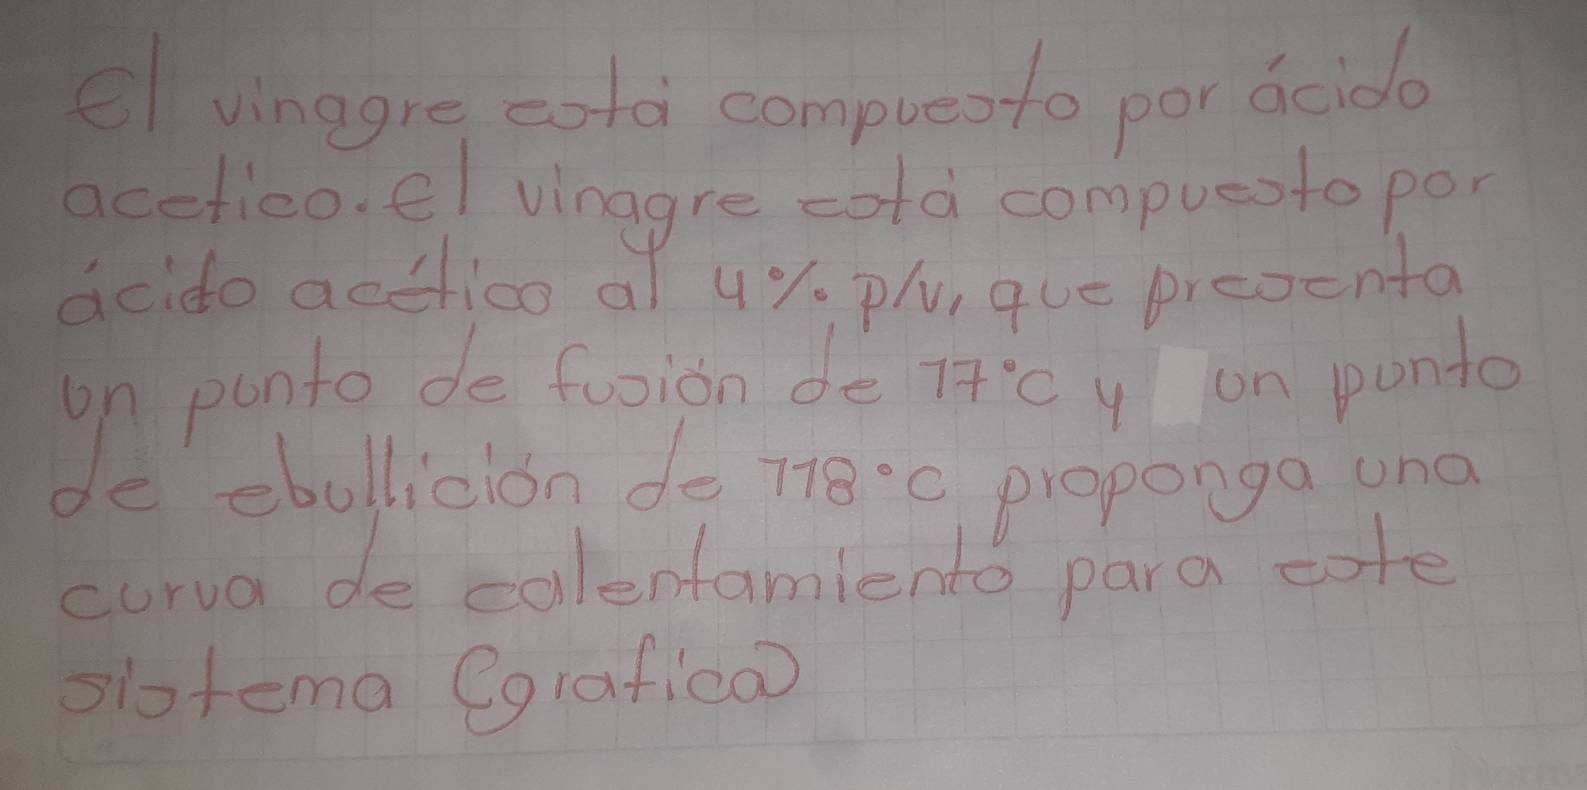 El vinagre está compuesto por ácido
acetico. El vinagre está compuesto por
ácido acético al 4% p/v, que presenta
un punto de fusión de 17°C y un punto
de ebullición de 118°C proponga una
curva de calentamiento para este
sistema (grafica)